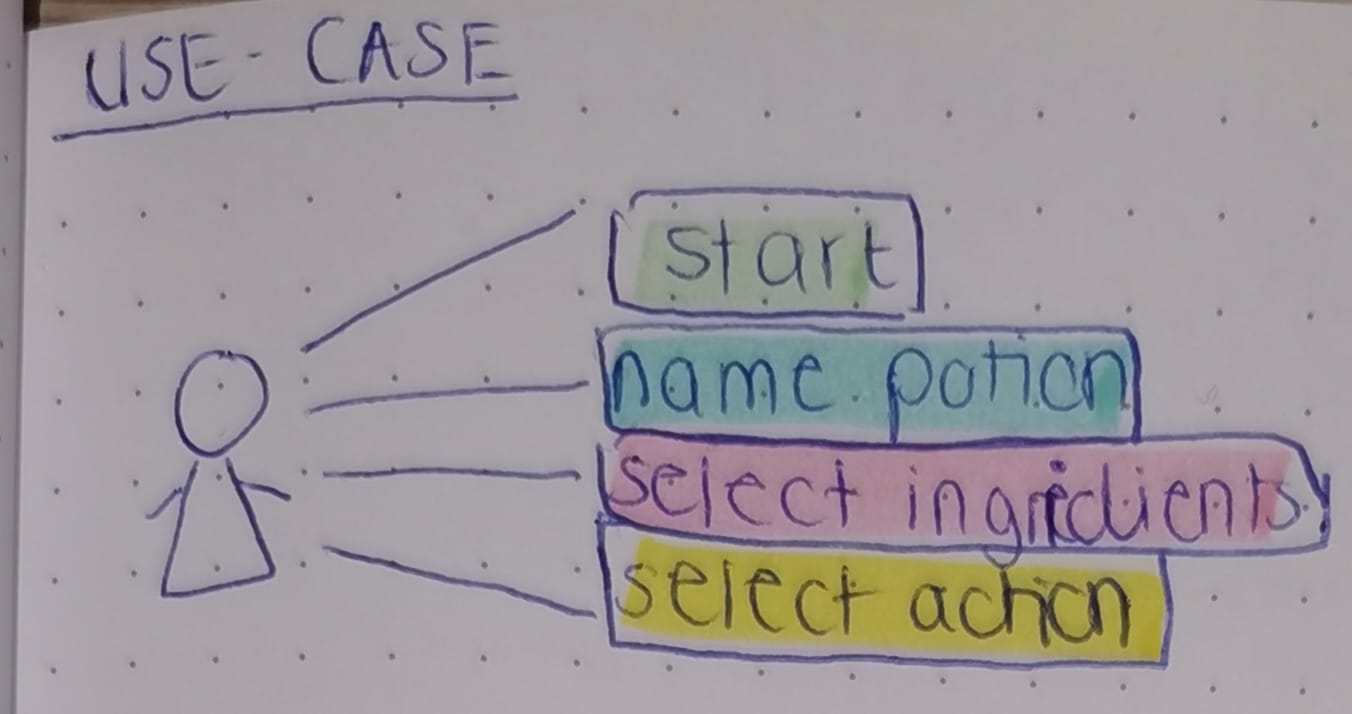 USE-CASE
start
name potion
select ingredients
select action